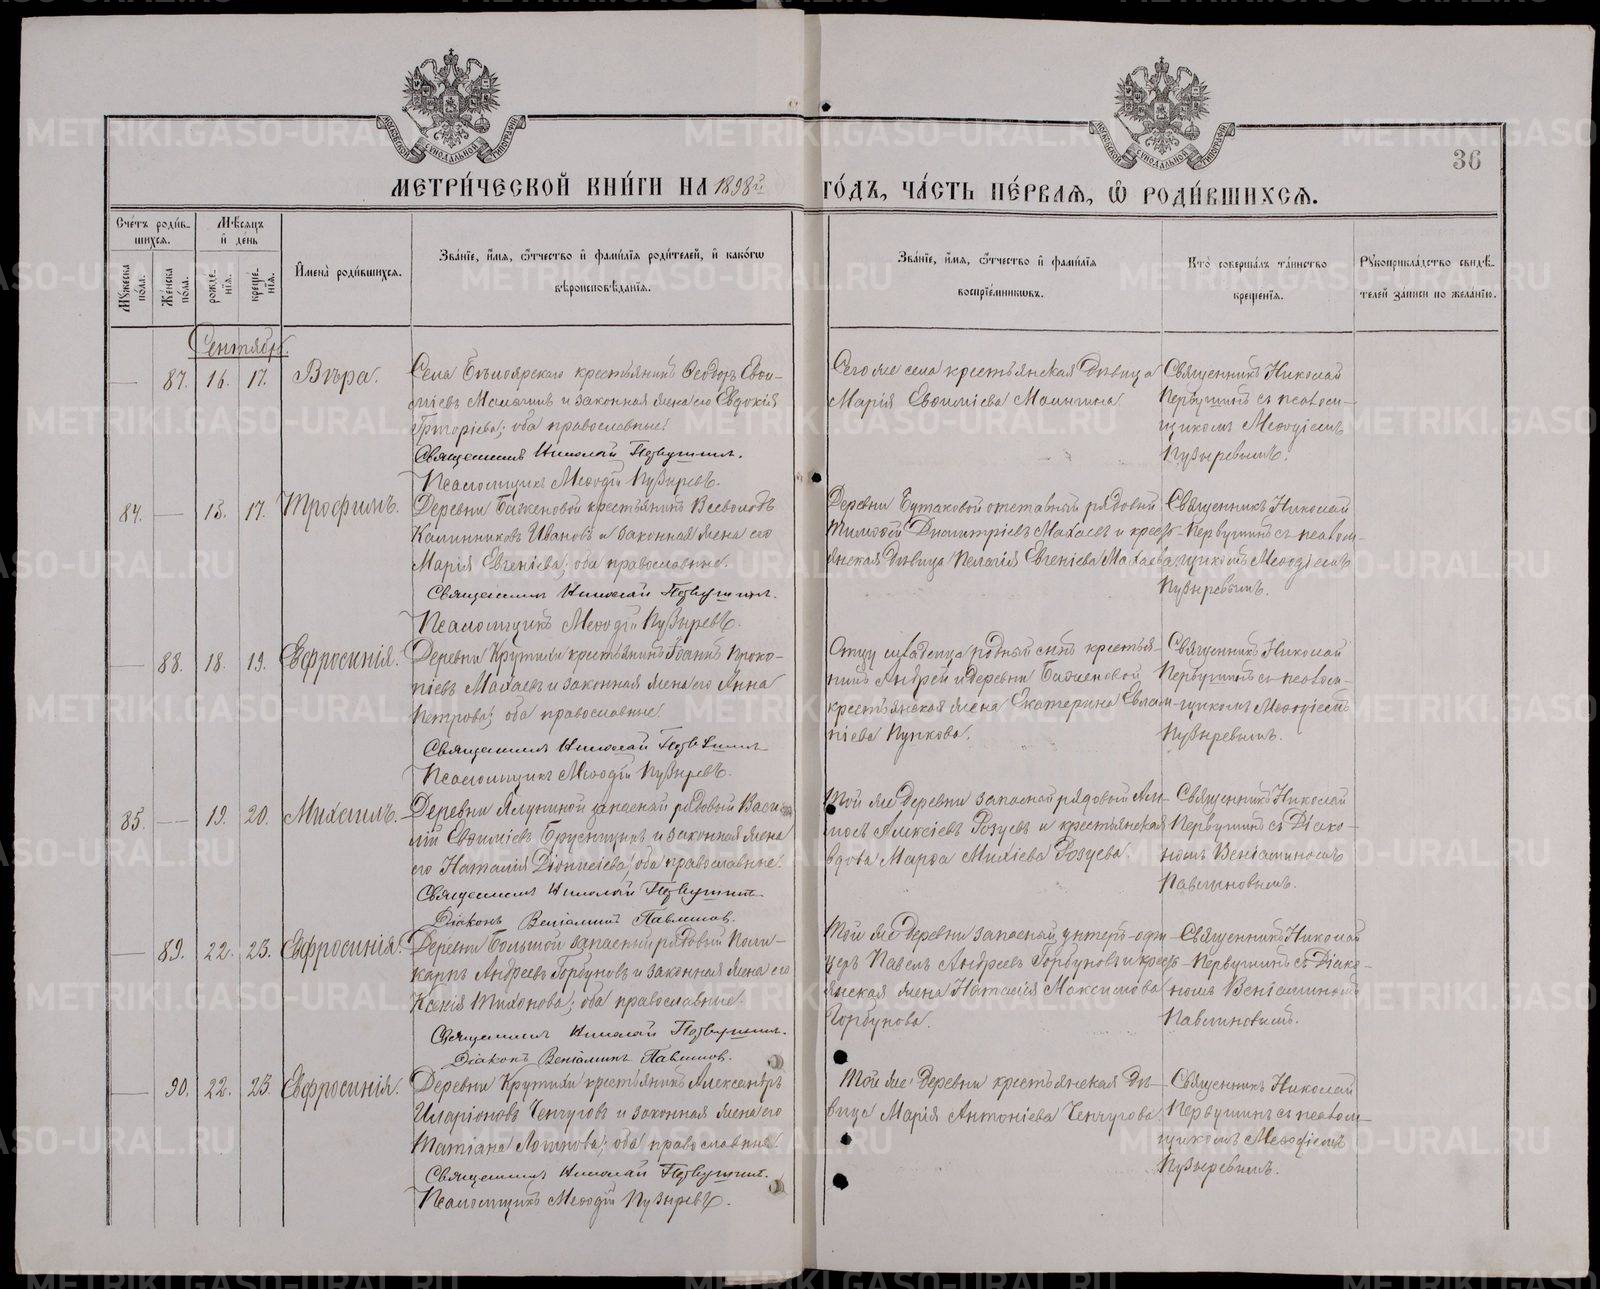 МОСКОВСКОЙ СѴНОДАЛЬНОЙ ТИПОГРАФІИ
МОСКОВСКОЙ СѴНОДАЛЬНОЙ ТИПОГРАФІИ
36
МЕТРИ́ЧЕСКОЙ КНИ́ГИ НА 1898й ГО́ДЪ, ЧА́СТЬ ПЕ́РВАЯ, Ѡ РОДИ́ВШИХСЯ.
Сче́тъ роди́в-
шихся.
Му́жеска по́ла.
Же́нска по́ла.
Мѣ́сяцъ и҆ де́нь
рожде́-
нїя.
креще́-
нїя.
И҆мена̀ роди́вшихся.
Зва́нїе, и҆́мя, ѻ҆́тчество и҆ фами́лїя роди́телей, и҆ како́гѡ
вѣроисповѣ́данїя.
Зва́нїе, и҆́мя, ѻ҆́тчество и҆ фами́лїя
воспрїе́мникѡвъ.
Кто̀ соверша́лъ та́инство
креще́нїя.
Рꙋкоприкла́дство свидѣ́-
телей за́писи по жела́нїю.
Сентябрь.
— 87. 16. 17. Вѣра.
Села Бѣлоярскаго крестьянинъ Ѳеодоръ Евѳи-
міевъ и законная жена его Евдокія
Григоріева; оба православные.
Священникъ Николай Первушинъ.
Псаломщикъ Меѳодій Пузыревъ.
Сего же села крестьянская дѣвица
Марія Евѳиміева
Священникъ Николай
Первушинъ съ псалом-
щикомъ Меѳодіемъ
Пузыревымъ.
84. — 15. 17. Трофимъ.
Деревни Баженовой крестьянинъ Всеволодъ
Калинниковъ Ивановъ и законная жена его
Марія Евгеніева; оба православные.
Священникъ Николай Первушинъ.
Псаломщикъ Меѳодій Пузыревъ.
Деревни Бутаковой отставный рядовый
Тимоѳей Димитріевъ Махаевъ и кресть-
янская дѣвица Пелагія Евгеніева Махаева
Священникъ Николай
Первушинъ съ псалом-
щикомъ Меѳодіемъ
Пузыревымъ.
— 88. 18. 19. Ефросинія.
Деревни Крутихи крестьянинъ Іоаннъ Проко-
піевъ Махаевъ и законная жена его Анна
Петрова; оба православные.
Священникъ Николай Первушинъ
Псаломщикъ Меѳодій Пузыревъ.
Отцу младенца родный сынъ крестья-
нинъ Андрей и деревни Баженовой
крестьянская жена Екатерина Евлам-
піева Пупкова.
Священникъ Николай
Первушинъ съ псалом-
щикомъ Меѳодіемъ
Пузыревымъ.
85. — 19. 20. Михаилъ.
Деревни Ялуниной запасный рядовый Васи-
лій Евѳиміевъ Брусницынъ и законная жена
его Наталія Діонисіева; оба православные.
Священникъ Николай Первушинъ
Діаконъ Веніаминъ Павлиновъ.
Той же деревни запасный рядовый
Алексіевъ и крестьянская
вдова Марѳа
Священникъ Николай
Первушинъ съ діако-
номъ Веніаминомъ
Павлиновымъ.
— 89. 22. 23. Ефросинія.
Деревни Большой запасный рядовый Поли-
карпъ Андреевъ Горбуновъ и законная жена его
Ксенія Тихонова; оба православные.
Священникъ Николай Первушинъ.
Діаконъ Веніаминъ Павлиновъ.
Той же деревни запасный унтеръ-офи-
церъ Павелъ Андреевъ Горбуновъ и кресть-
янская жена Наталія Максимова
Горбунова.
Священникъ Николай
Первушинъ съ діако-
номъ Веніаминомъ
Павлиновымъ.
— 90. 22. 23. Ефросинія.
Деревни Крутихи крестьянинъ Александръ
Иларіоновъ Чепчуговъ и законная жена его
Татіана Логинова; оба православные.
Священникъ Николай Первушинъ.
Псаломщикъ Меѳодій Пузыревъ.
Той же деревни крестьянская дѣ-
вица Марія Антоніева Чепчугова.
Священникъ Николай
Первушинъ съ псалом-
щикомъ Меѳодіемъ
Пузыревымъ.
METRIKI.GASO-URAL.RU